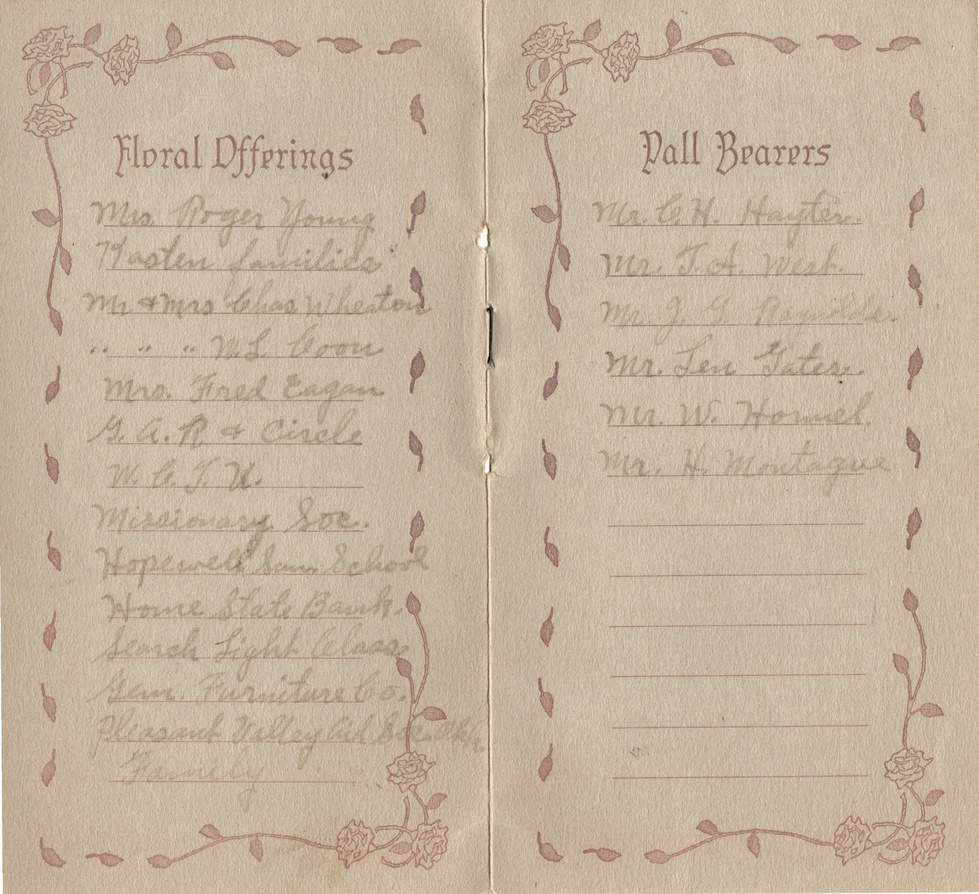 Floral Offerings
Mrs. Roger Young
Hasten families
Mr & Mrs Chas Wheaton
" " " W.L. Coon
Mrs. Fred Eagan
G. A. R & Circle
W. C. T. U.
Missionary Soc.
Hopewell Sun. School
Home State Bank.
Search Light Class
Gem. Furniture Co.
Pleasant Valley Aid Soc.
Family
Pall Bearers
Mr. C. H. Hayter.
Mr. T. A. West.
Mr. J. G. Reynolds.
Mr. Len Gates.
Mr. W. Hommel.
Mr. H. Montague